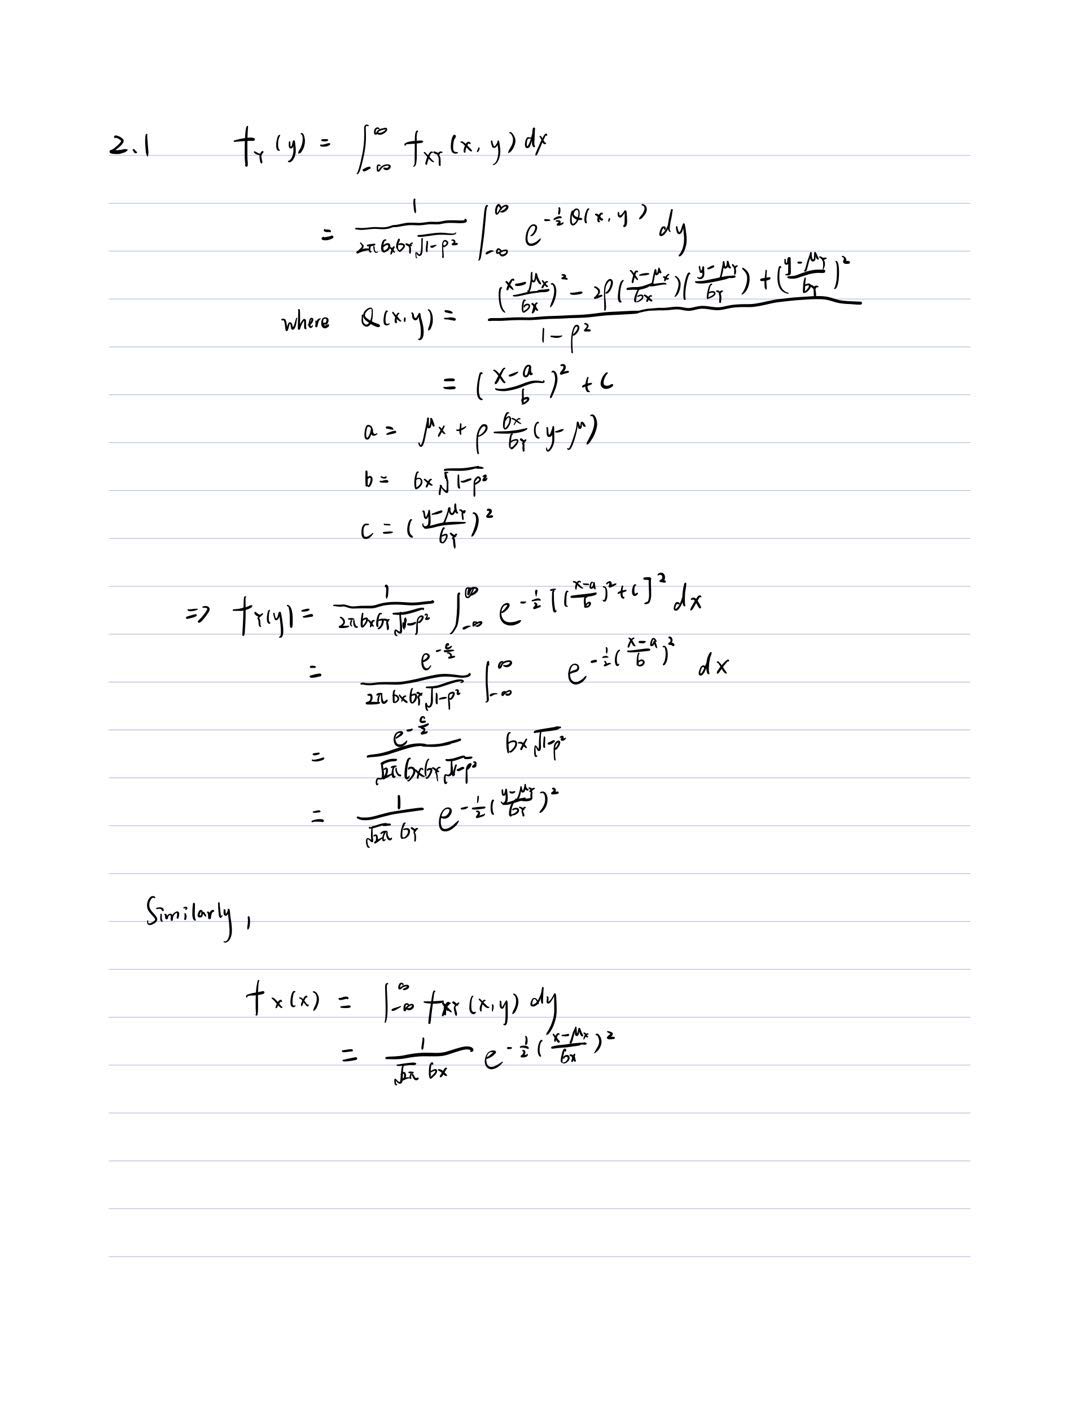 2.1 f_Y(y) = ∫_{-∞}^{∞} f_{XY}(x, y) dx
= \frac{1}{2π σ_x σ_Y \sqrt{1-ρ^2}} ∫_{-∞}^{∞} e^{-\frac{1}{2} Q(x, y)} dy
where Q(x, y) = \frac{(\frac{x-μ_x}{σ_x})^2 - 2ρ(\frac{x-μ_x}{σ_x})(\frac{y-μ_Y}{σ_Y}) + (\frac{y-μ_Y}{σ_Y})^2}{1-ρ^2}
= (\frac{x-a}{b})^2 + c
a = μ_x + ρ \frac{σ_x}{σ_Y} (y-μ)
b = σ_x \sqrt{1-ρ^2}
c = (\frac{y-μ_Y}{σ_Y})^2
=> f_Y(y) = \frac{1}{2π σ_x σ_Y \sqrt{1-ρ^2}} ∫_{-∞}^{∞} e^{-\frac{1}{2} [(\frac{x-a}{b})^2 + c]^2} dx
= \frac{e^{-\frac{c}{2}}}{2π σ_x σ_Y \sqrt{1-ρ^2}} ∫_{-∞}^{∞} e^{-\frac{1}{2} (\frac{x-a}{b})^2} dx
= \frac{e^{-\frac{c}{2}}}{\sqrt{2π} σ_x σ_Y \sqrt{1-ρ^2}} σ_x \sqrt{1-ρ^2}
= \frac{1}{\sqrt{2π} σ_Y} e^{-\frac{1}{2} (\frac{y-μ_Y}{σ_Y})^2}
Similarly,
f_X(x) = ∫_{-∞}^{∞} f_{XY}(x, y) dy
= \frac{1}{\sqrt{2π} σ_x} e^{-\frac{1}{2} (\frac{x-μ_x}{σ_x})^2}